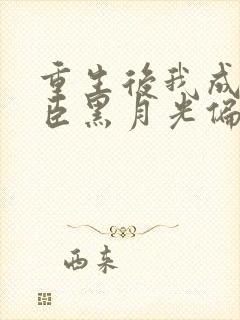 重生後我成
臣黑月光偏
西柒